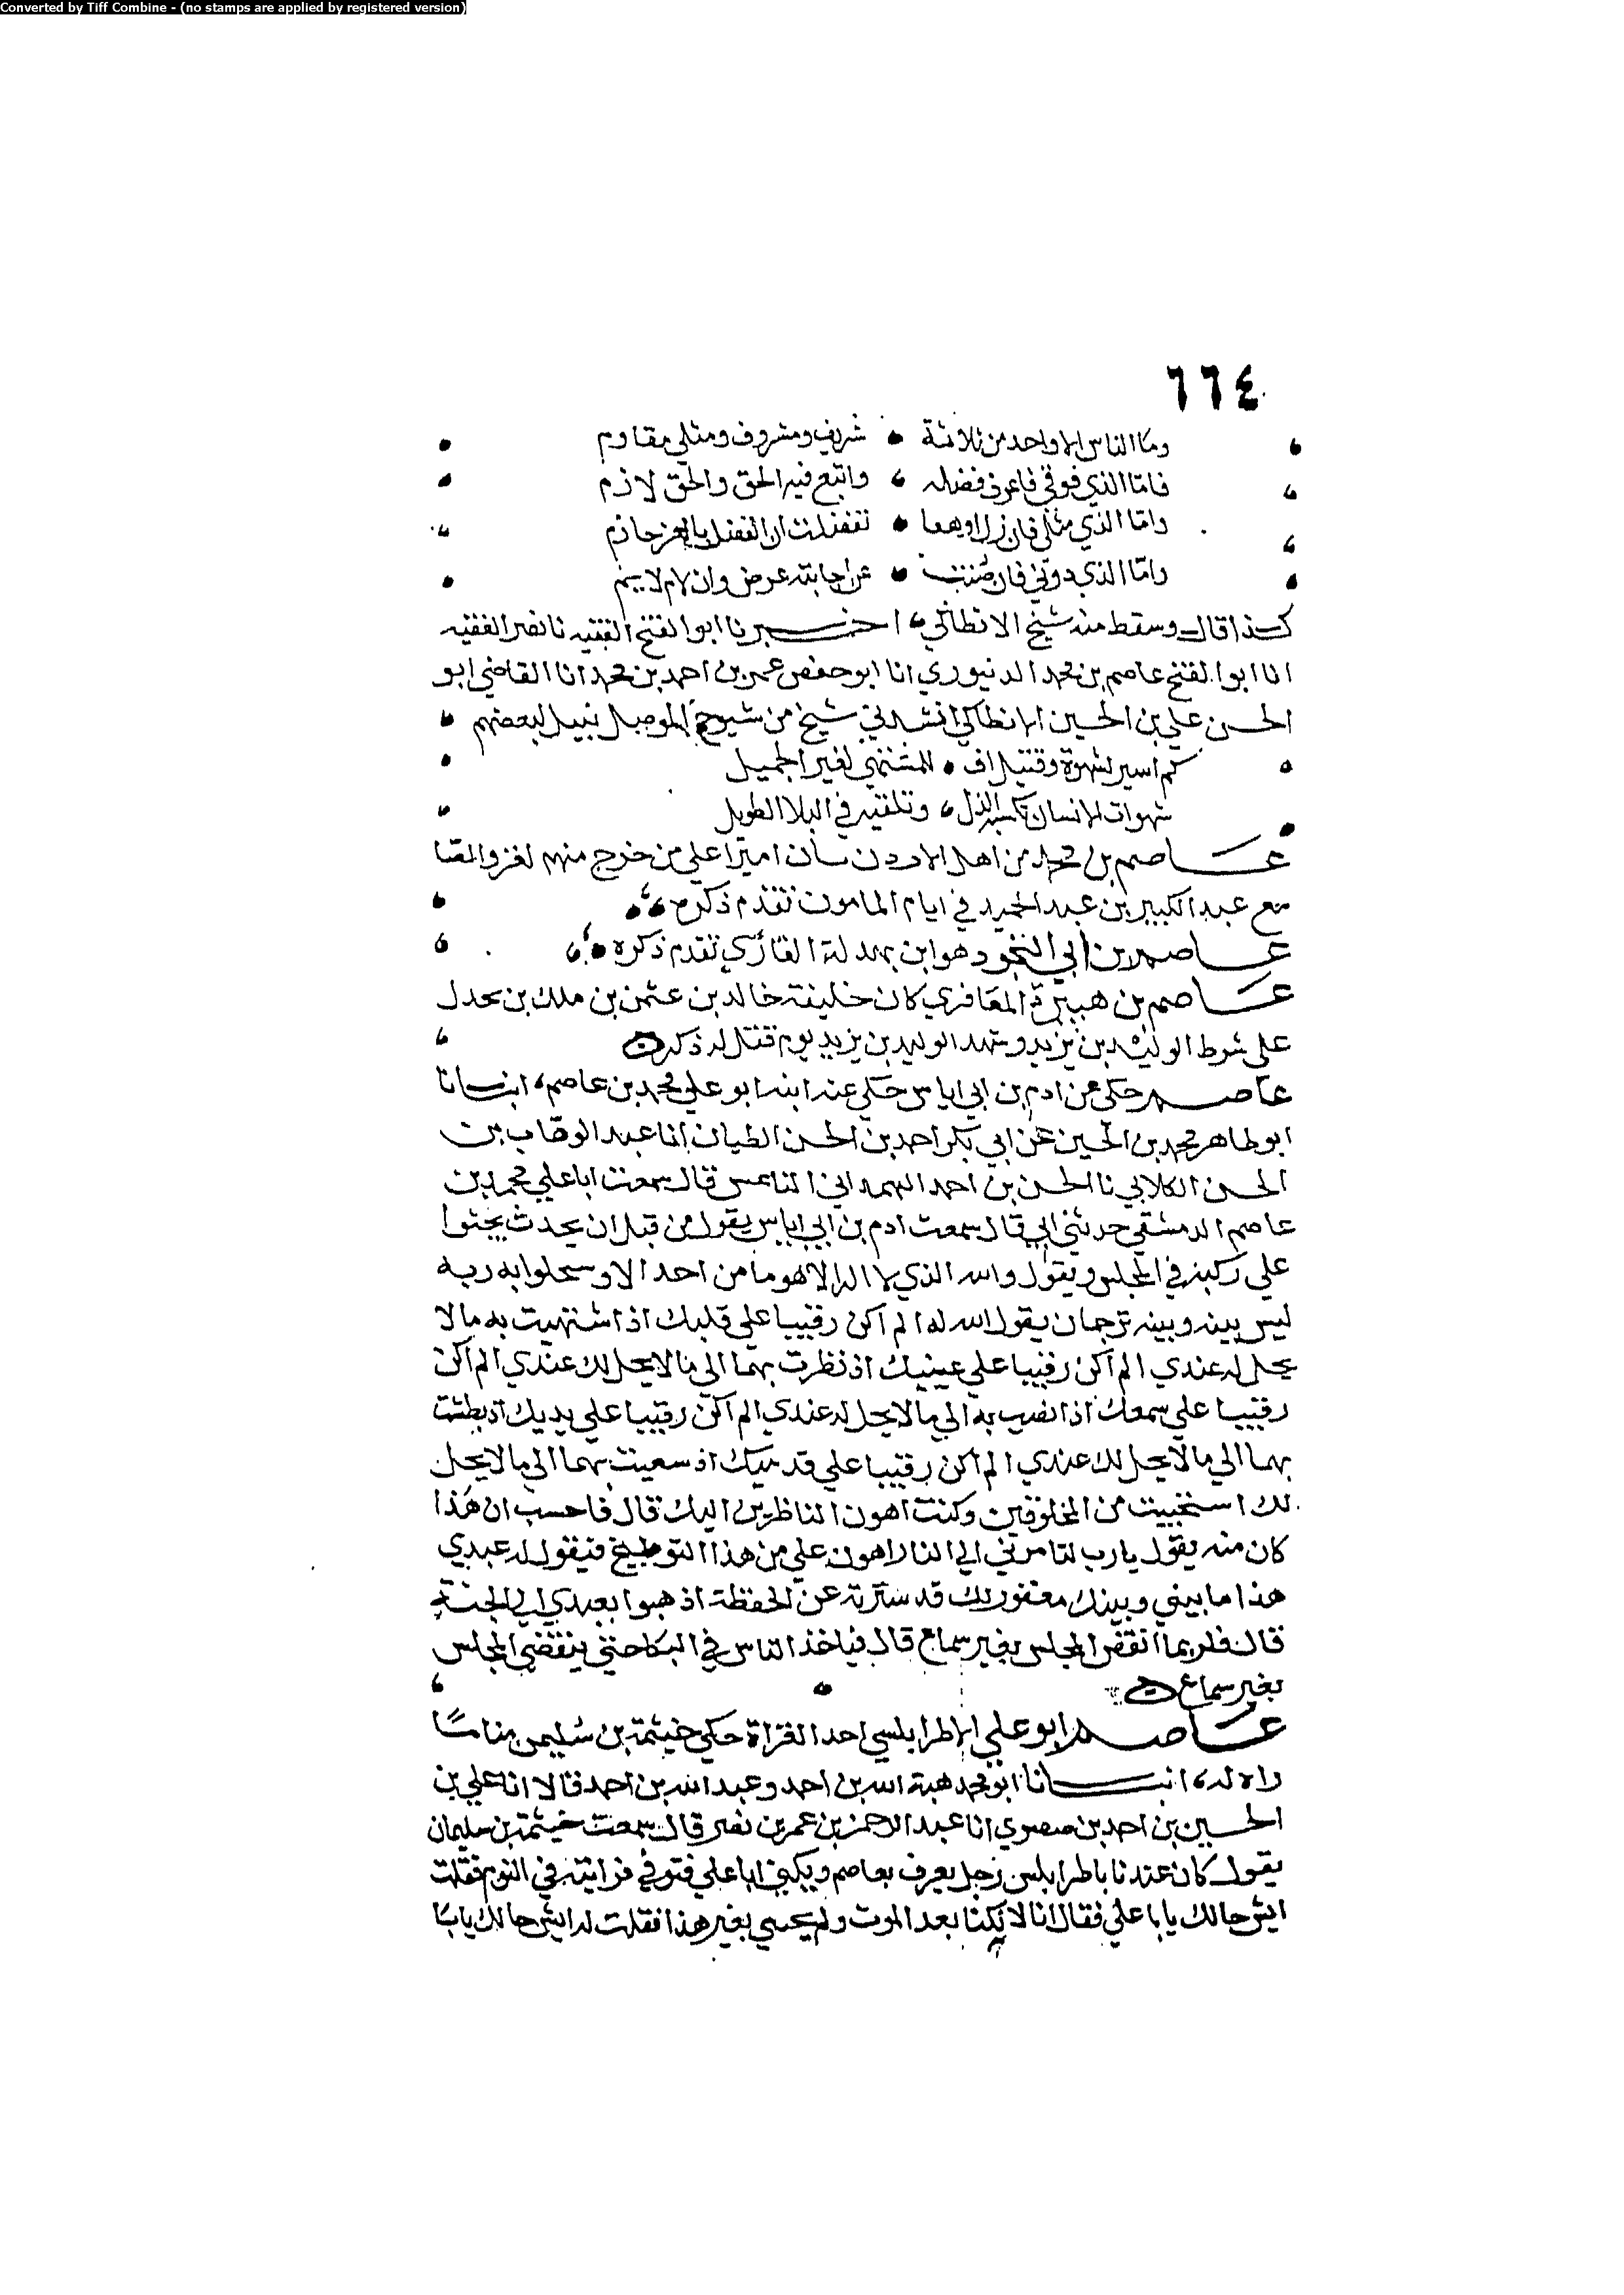 Converted by Tiff Combine - (no stamps are applied by registered version)
٦٦٤
وما الناس الا واحد من ثلاثة شريف ومشروف ومثلي مقاوم
فاما الذي فوقي فاعرف فضله واتبع فيه الحق والحق لازم
واما الذي مثلي فان زل او هفا تفضلت ان الفضل بالعز حازم
واما الذي دوني فان صنت عن اجابته عرضي وان لام لايم
كذا قال وسقط منه شيخ الانطاكي اخبرنا ابو الفتح الفقيه نا نصر الفقيه
انا ابو الفتح عاصم بن محمد الدنيوري انا ابو حفص عمر بن احمد بن محمد انا القاضي ابو
الحسن علي بن الحسين الانطاكي انشدني شيخ من شيوخ الموصل نبيل لبعضهم
كم اسير لشهوة وقتيل اف للمشتهي لغير الجميل
شهوات الانسان تكسبه الذل وتلقيه في البلا الطويل
عاصم بن محمد من اهل الاردن كان اميرا علي من خرج منهم لغزو المصا
مع عبد الكبير بن عبد الحميد في ايام المامون تقدم ذكره
عاصم بن ابي النجود هو ابن بهدلة القاري تقدم ذكره
عاصم بن هبيرة المعافري كان خليفة خالد بن عثمن بن ملك بن بحدل
علي شرط الوليد بن يزيد وشهد الوليد بن يزيد يوم قتل له ذكر
عاصم حكي عن ادم بن ابي اياس حكي عنه ابنه ابو علي محمد بن عاصم انبانا
ابو طاهر محمد بن الحسين عن ابي بكر احمد بن الحسن الطيان انا عبد الوهاب بن
الحسن الكلابي نا الحسن بن احمد الهمداني الناعس قال سمعت ابا علي محمد بن
عاصم الدمشقي حدثني ابي قال سمعت ادم بن ابي اياس يقول من قبل ان يحدث يجثوا
علي ركبته في المجلس ويقول والله الذي لا اله الا هو ما من احد الا وسيخلوا به ربه
ليس بينه وبينه ترجمان يقول الله له الم اكن رقيبا علي قلبك اذا اشتهيت به ما لا
يحل له عندي الم اكن رقيبا علي عينيك اذ نظرت بهما الي ما لا يحل لك عندي الم اكن
رقيبا علي سمعك اذا نصت به الي ما لا يحل له عندي الم اكن رقيبا علي يديك اذ بطشت
بهما الي ما لا يحل لك عندي الم اكن رقيبا علي قدميك اذ سعيت بهما الي ما لا يحل
لك استخييت من المخلوقين وكنت اهون الناظرين اليك قال فاحسب ان هذا
كان منه يقول يا رب لتامرني الي النار اهون علي من هذا التوطيخ فيقول له عبدي
هذا ما بيني وبينك مغفور لك قد سترته عن الحفظة اذهبوا بعبدي الي الجنة
قال فلربما انقض المجلس بغير سماع قال فياخذ الناس في البكا حتي ينقضي المجلس
بغير سماع
عاصم ابو علي الاطرابلسي احد القراة حكي خيثمة بن سليمن مناما
راه له انبانا ابو محمد هبة الله بن احمد وعبد الله بن احمد قالا انا علي بن
الحسين بن احمد بن صصري انا عبد الرحمن بن عمر بن نصر قال سمعت خيثمة بن سليمان
يقول كان عندنا باطرابلس رجل يعرف بعاصم ويكني ابا علي فتوفي فرايته في النوم فقلت
ايش حالك يابا علي فقال انا لا نكنا بعد الموت ولم يجبني بغير هذا فقلت له ايش حالك يابا